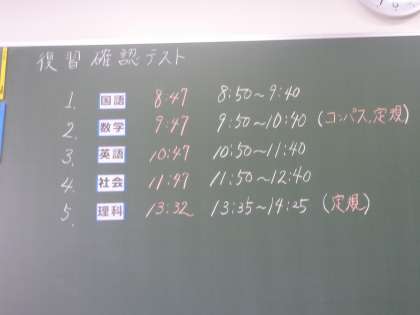 復習確認テスト
1. 国語 8:47 8:50～9:40
2. 数学 9:47 9:50～10:40 (コンパス,定規)
3. 英語 10:47 10:50～11:40
4. 社会 11:47 11:50～12:40
5. 理科 13:32 13:35～14:25 (定規)